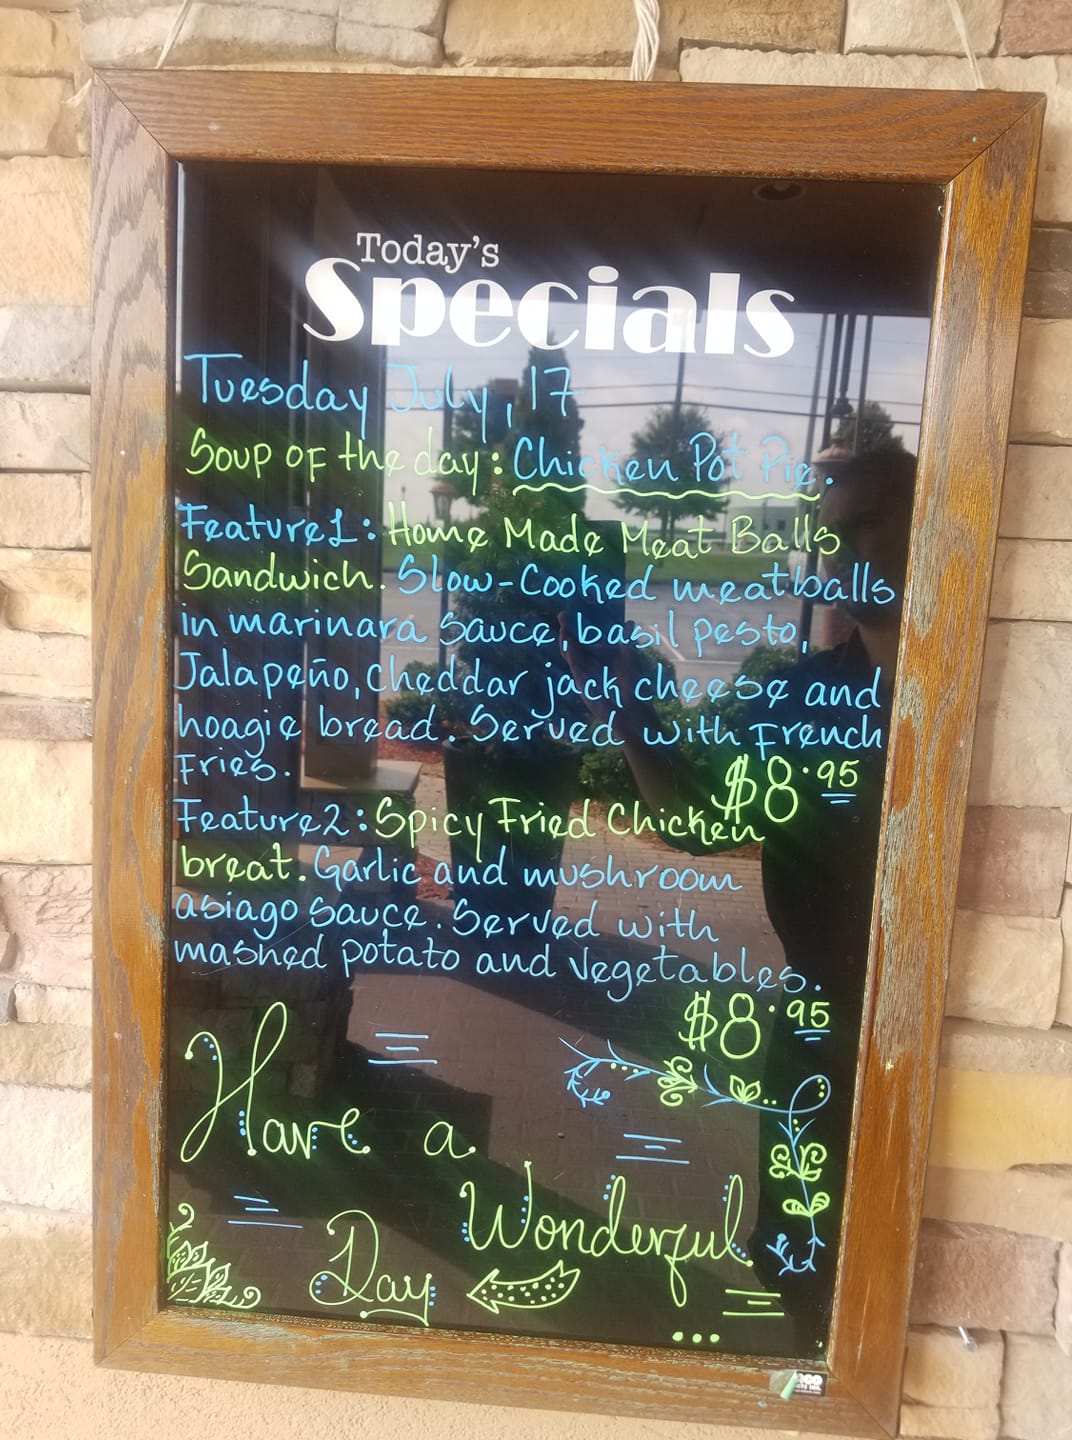 Today's
Specials
Tuesday July, 17
Soup of the day: Chicken Pot Pie.
Feature1: Home Made Meat Balls
Sandwich. Slow-Cooked meatballs
in marinara sauce, basil pesto,
Jalapeño, Cheddar jack cheese and
hoagie bread. Served with French
Fries.
$8.95
Feature2: Spicy Fried Chicken
breat. Garlic and mushroom
asiago sauce. Served with
mashed potato and vegetables.
$8.95
Have a
Wonderful
Day
...